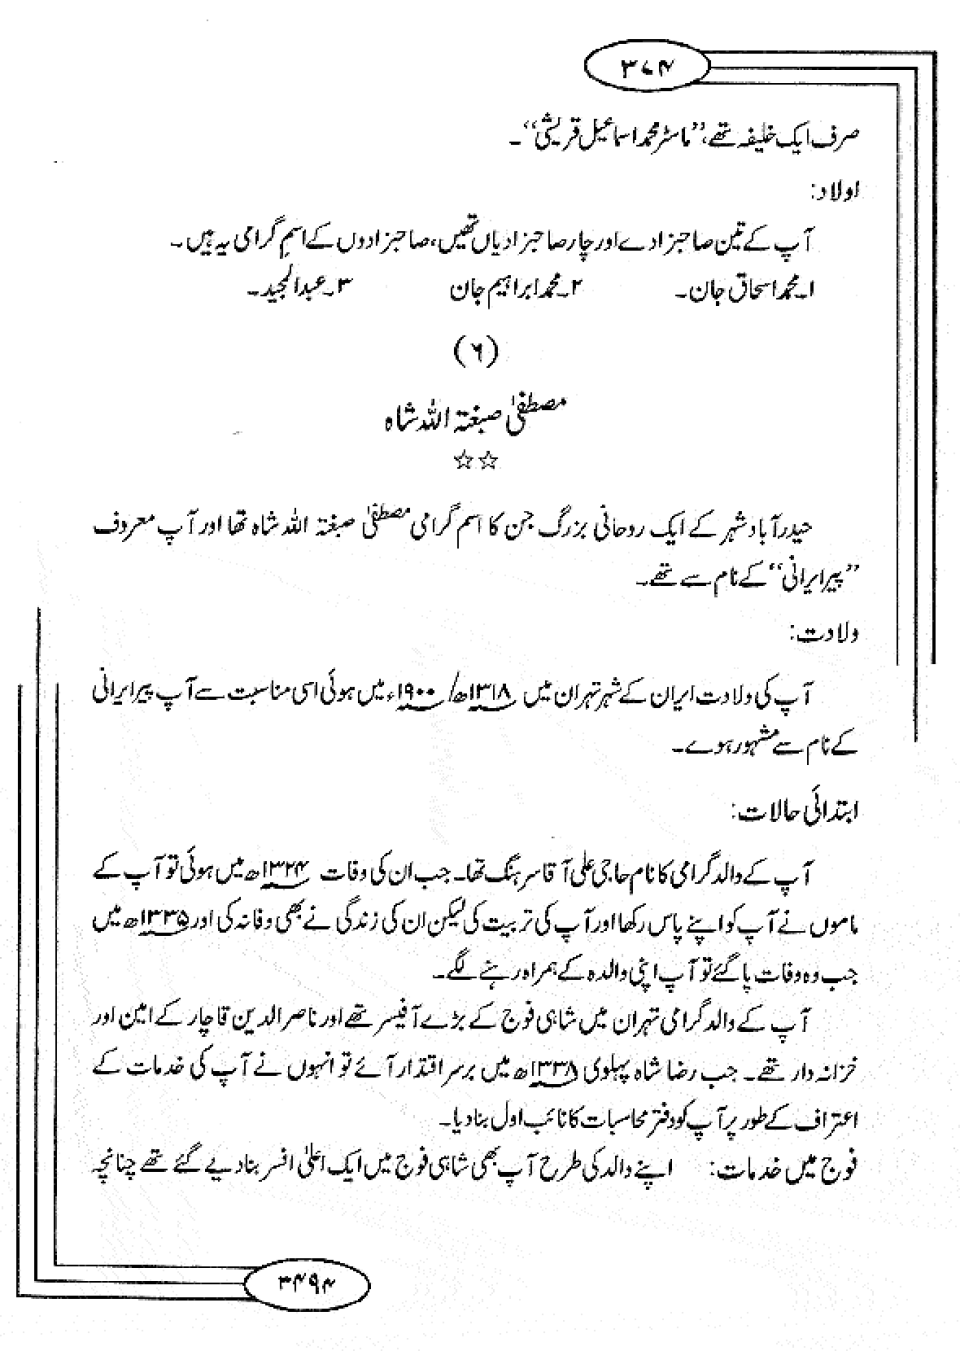 ۳۷۴
صرف ایک خلیفہ تھے، ’’ماسٹر محمد اسماعیل قریشی‘‘۔
اولاد:
آپ کے تین صاحبزادے اور چار صاحبزادیاں تھیں، صاحبزادوں کے اسم گرامی یہ ہیں۔
۱۔ محمد اسحاق جان۔ ۲۔ محمد ابراہیم جان ۳۔ عبدالمجید۔
(۶)
مصطفیٰ صبغۃ اللہ شاہ
☆☆
حیدرآباد شہر کے ایک روحانی بزرگ جن کا اسم گرامی مصطفیٰ صبغۃ اللہ شاہ تھا اور آپ معروف
’’پیر ایرانی‘‘ کے نام سے تھے۔
ولادت:
آپ کی ولادت ایران کے شہر تہران میں ۱۳۱۸ھ/۱۹۰۰ء میں ہوئی اسی مناسبت سے آپ پیر ایرانی
کے نام سے مشہور ہوے۔
ابتدائی حالات:
آپ کے والد گرامی کا نام حاجی علی آقا سرہنگ تھا۔ جب ان کی وفات ۱۳۲۴ھ میں ہوئی تو آپ کے
ماموں نے آپ کو اپنے پاس رکھا اور آپ کی تربیت کی لیکن ان کی زندگی نے بھی وفا نہ کی اور ۱۳۳۵ھ میں
جب وہ وفات پا گئے تو آپ اپنی والدہ کے ہمراہ رہنے لگے۔
آپ کے والد گرامی تہران میں شاہی فوج کے بڑے آفیسر تھے اور ناصر الدین قاچار کے امین اور
خزانہ دار تھے۔ جب رضا شاہ پہلوی ۱۳۳۸ھ میں برسر اقتدار آئے تو انہوں نے آپ کی خدمات کے
اعتراف کے طور پر آپ کو دفتر محاسبات کا نائب اول بنا دیا۔
فوج میں خدمات: اپنے والد کی طرح آپ بھی شاہی فوج میں ایک اعلیٰ افسر بنا دیے گئے تھے چنانچہ
۳۴۹۴